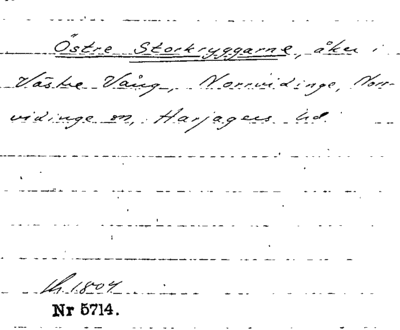 Östre Storkryggarne, åker i
Västre Vång, Norrvidinge, Norr-
vidinge sn, Harjagers hd.
1804
Nr 5714.